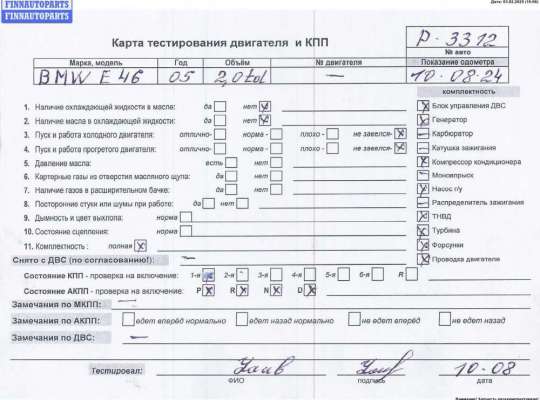 FINNAUTOPARTS
FINNAUTOPARTS
Дата: 03.02.2025 (15:08)
Карта тестирования двигателя и КПП
P-3312
№ авто
Марка, модель Год Объём № двигателя Показание одометра
BMW E46 05 2,0 td — 10-08-24
комплектность
1. Наличие охлаждающей жидкости в масле: да нет
2. Наличие масла в охлаждающей жидкости: да нет
3. Пуск и работа холодного двигателя: отлично- норма - плохо - не завелся-
4. Пуск и работа прогретого двигателя: отлично- норма - плохо - не завелся-
5. Давление масла: есть нет
6. Картерные газы из отверстия масляного щупа: да нет
7. Наличие газов в расширительном бачке: да нет
8. Посторонние стуки или шумы при работе: да нет
9. Дымность и цвет выхлопа: норма
10. Состояние сцепления: норма
11. Комплектность : полная
Блок управления ДВС
Генератор
Карбюратор
Катушка зажигания
Компрессор кондиционера
Моновпрыск
Насос г/у
Распределитель зажигания
ТНВД
Турбина
Форсунки
Проводка двигателя
Снято с ДВС (по согласованию!): —
Состояние КПП - проверка на включение: 1-я 2-я 3-я 4-я 5-я 6-я R
Состояние АКПП - проверка на включение: P R N D
Замечания по МКПП: —
Замечания по АКПП: едет вперёд нормально едет назад нормально не едет вперёд не едет назад
Замечания по ДВС: —
Тестировал: 10-08
ФИО подпись дата